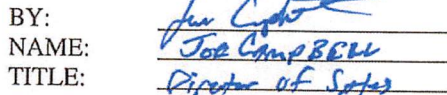 BY:
NAME: JOE CAMPBELL
TITLE: Director of Sales